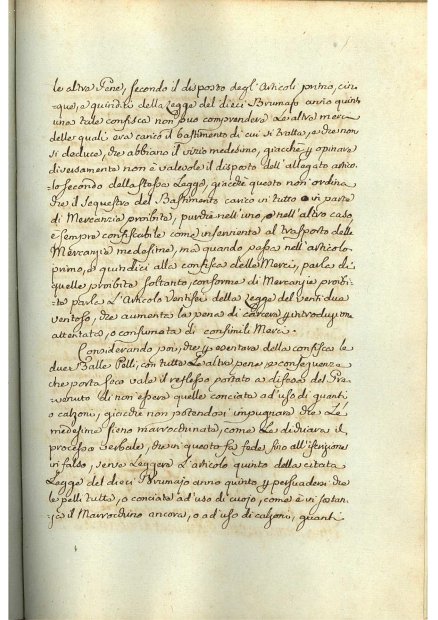 le altre Pene, secondo il disposto degl'Articoli primo, cin-
que, e quindici della Legge del dieci Brumajo anno quinto
una tale confisca non può comprendere Le altre merci
delle quali era carico il bastimento di cui si tratta, e che non
si deduce, che abbiano il vizio medesimo, giacchè y opinare
diversamente non è valevole il disposto dell'allegato artico-
lo secondo della stessa Legge, giacchè questo non ordina
che il Sequestro del Bastimento carico in tutto o in parte
di Mercanzie proibite, purchè nell'uno, o nell'altro caso,
è sempre confiscabile come inserviente al trasporto delle
Mercanzie medesime, ma quando passa nell'articolo
primo, e quindici alla confisca delle Merci, parla di
quelle proibite soltanto, conforme di Mercanzie proibi-
te parla L'Articolo ventisei della Legge del venti due
ventoso, che aumenta la pena di carcere y introduzione
attentata, o consumata di consimili Merci.
Considerando poi, che y esentare dalla confisca le
due Balle Pelli, con tutte Le altre pene, e conseguenze
che porta seco vale il riflesso portato a difesa del Pre-
venuto di non essere quelle conciate ad'uso di guanti
o calzoni, giacchè non potendosi impugnare che Le
medesime sieno marrochinate, come Le dichiara il
processo verbale, che in questo fa fede sino all'iscrizione
in falso, serve Leggere L'articolo quinto della citata
Legge del dieci Brumajo anno quinto y persuadersi che
le pelli tutte, o conciate ad'uso di cuojo, come è in sostan-
za il Marrochino ancora, o ad'uso di calzoni, guanti